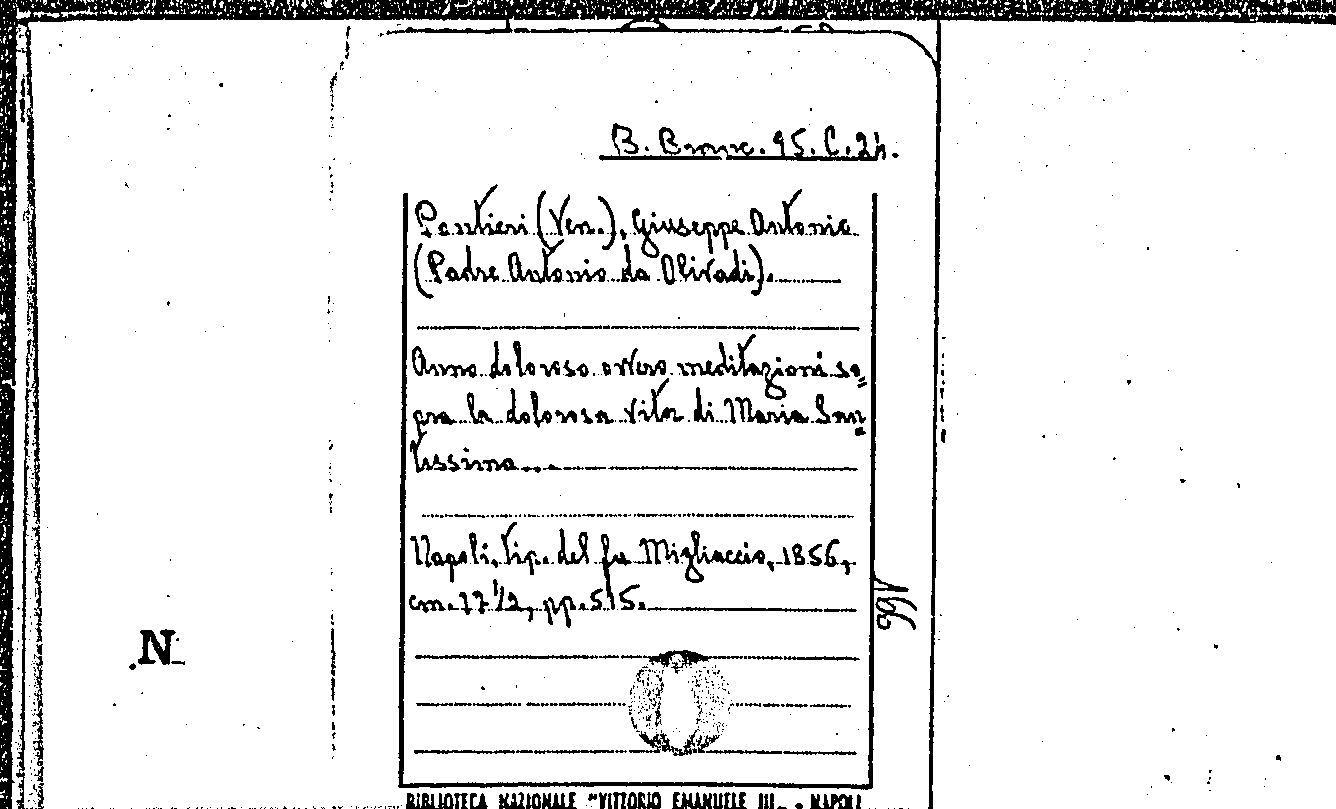 B. Branc. 95. C. 24.
Pantieri (Ven.), Giuseppe Antonio
(Padre Antonio da Olivadi).
Anno doloroso ovvero meditazioni so=
pra la dolorosa vita di Maria San=
tissima...
Napoli, tip. del fu Migliaccio, 1856,
cm. 17 1/2, pp. 515.
166
N
BIBLIOTECA NAZIONALE "VITTORIO EMANUELE III„ - NAPOLI